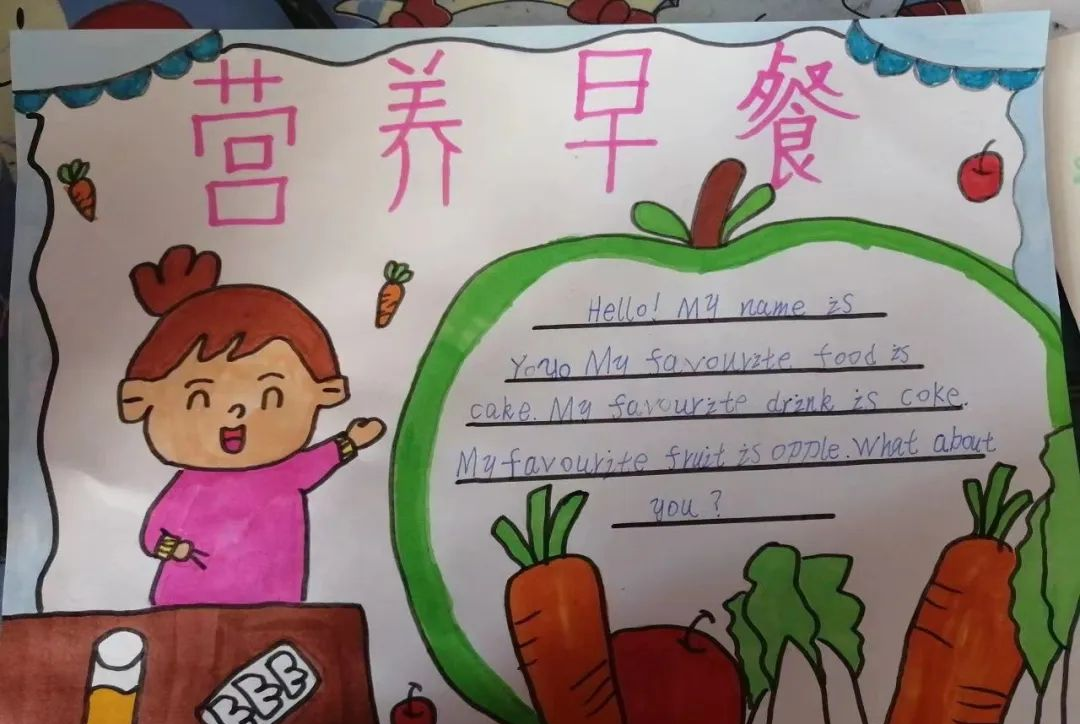 营养早餐
Hello! My name is
Yoyo My favourite food is
cake. My favourite drink is coke.
My favourite fruit is opple. What about
you?